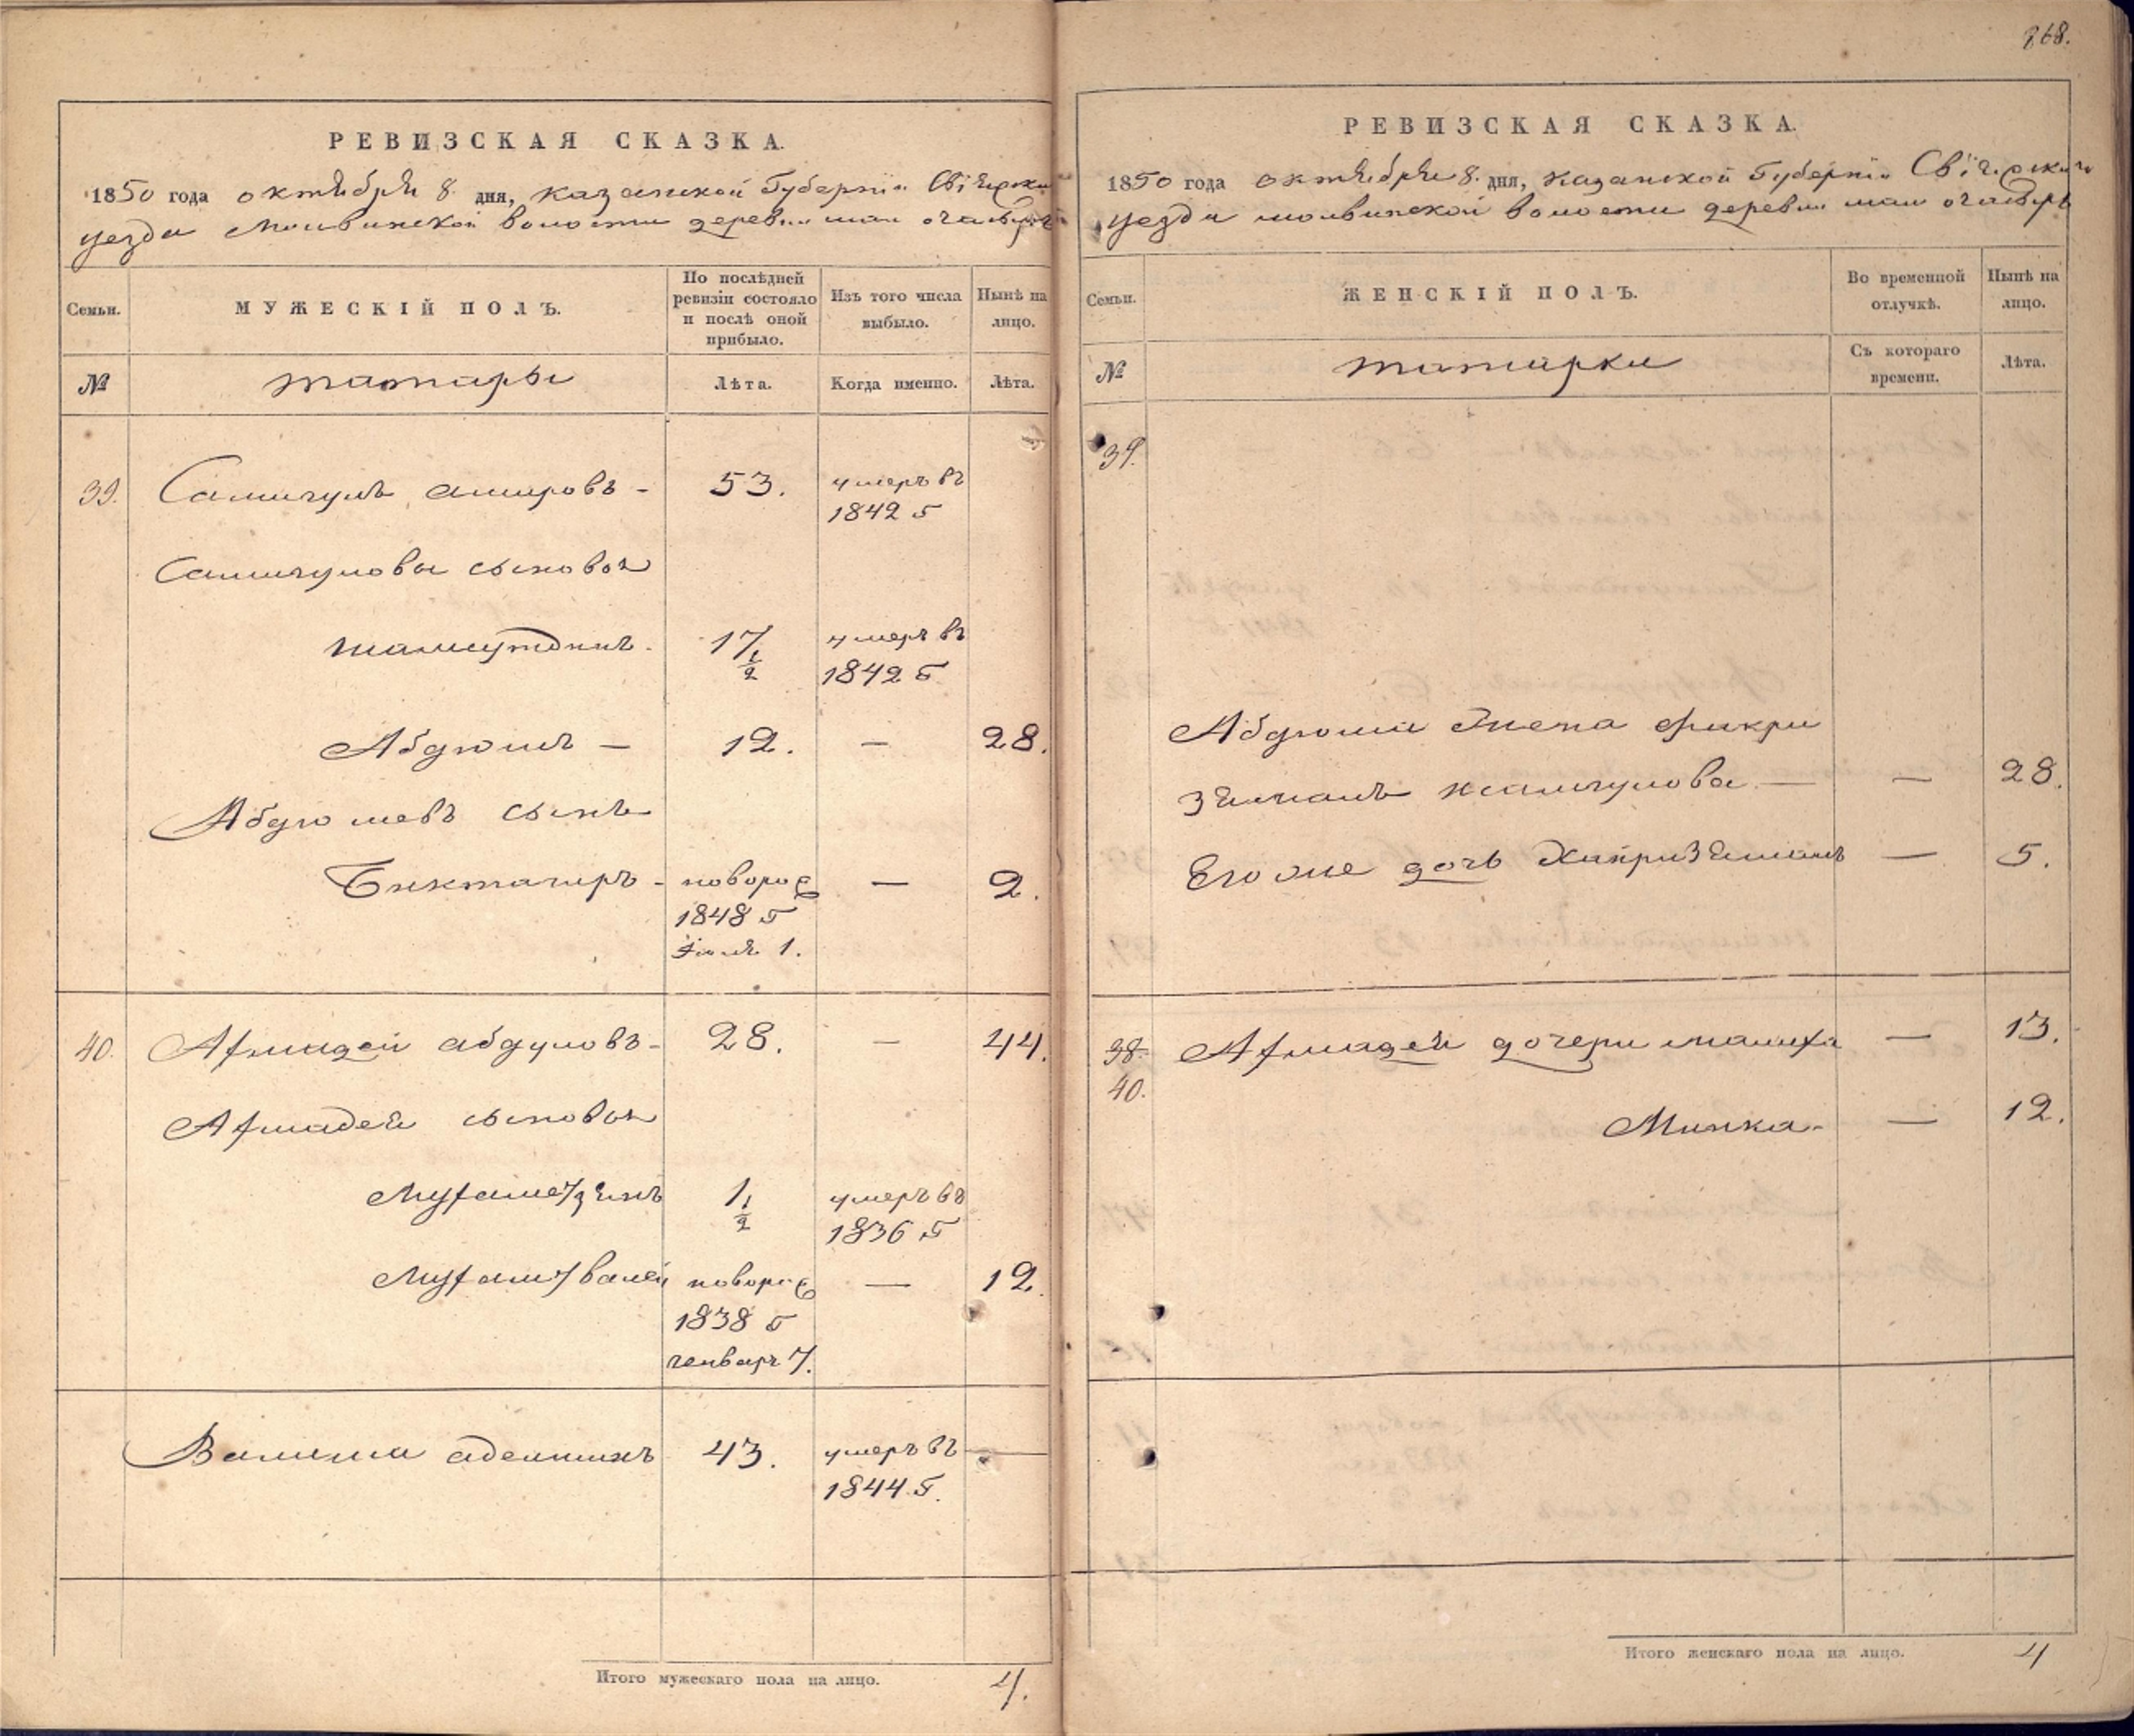 868.
РЕВИЗСКАЯ СКАЗКА.
1850 года октября 8 дня, Казанской Губернии Свіяжска
уезда Молвинской волости деревни
Семьи.
МУЖЕСКІЙ ПОЛЪ.
По послѣдней ревизіи состояло и послѣ оной прибыло.
Изъ того числа выбыло.
Нынѣ на лицо.
№
татары
Лѣта.
Когда именно.
Лѣта.
39. Салигулъ амировъ - 53. умеръ въ
1842 г
Салигуловы сыновья
шамсутдинъ - 17 1/2 умеръ въ
1842 г
Абдюшъ — 12. — 28.
Абдюшевъ сынъ
Биктагиръ - новорож — 2.
1848 г
Іюля 1.
40. Ахмадей абдуловъ - 28. — 44.
Ахмадея сыновья
Мухаметзянъ 1 1/2 умеръ въ
1836 г
Мухаметвалей новорож — 12.
1838 г
генваря 7.
Валиша 43. умеръ въ —
1844 г.
Итого мужескаго пола на лицо. 4.
РЕВИЗСКАЯ СКАЗКА.
1850 года октября 8 дня, Казанской Губерніи Свіяжскаго
уезда молвинской волости деревни
Семьи.
ЖЕНСКІЙ ПОЛЪ.
Во временной отлучкѣ.
Нынѣ на лицо.
№
татарки
Съ котораго времени.
Лѣта.
39.
Абдюша жена фахри
зяманъ — — 28.
Его же дочь Хайризяманъ — 5.
38. Ахмадея дочери малиха — 13.
40.
Минка - — 12.
Итого женскаго пола на лицо. 4